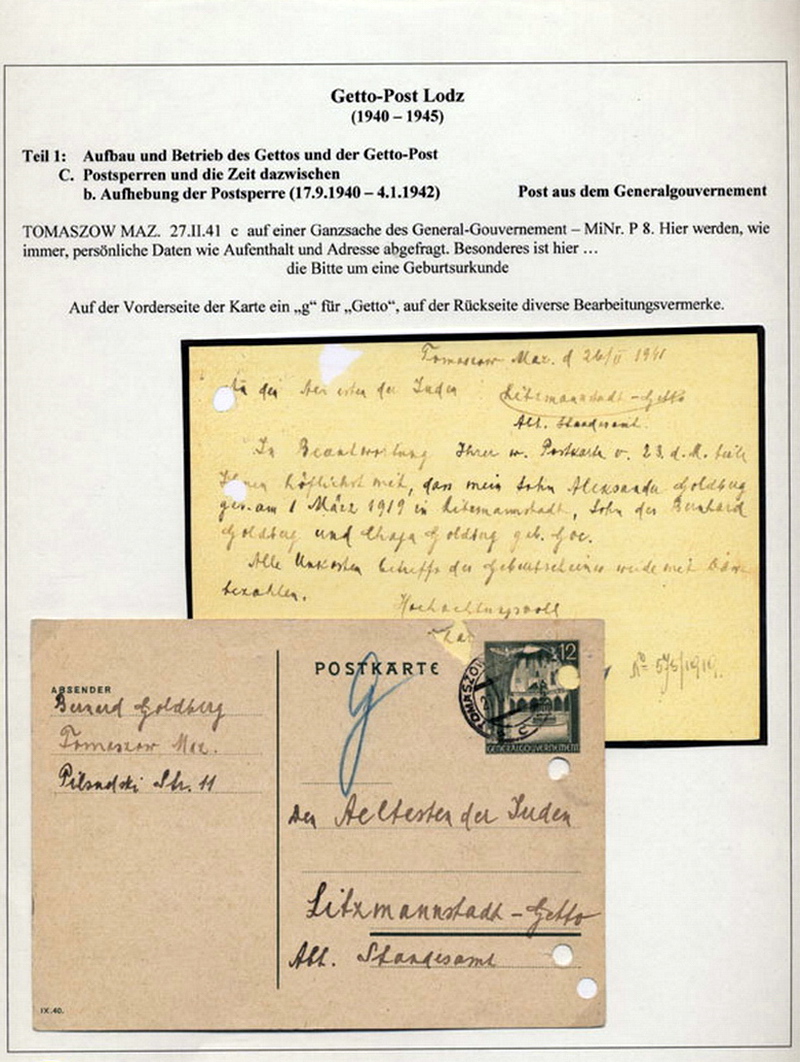 Getto-Post Lodz
(1940 – 1945)
Teil 1: Aufbau und Betrieb des Gettos und der Getto-Post
C. Postsperren und die Zeit dazwischen
b. Aufhebung der Postsperre (17.9.1940 – 4.1.1942) Post aus dem Generalgouvernement
TOMASZOW MAZ. 27.II.41 c auf einer Ganzsache des General-Gouvernement – MiNr. P 8. Hier werden, wie
immer, persönliche Daten wie Aufenthalt und Adresse abgefragt. Besonderes ist hier …
die Bitte um eine Geburtsurkunde
Auf der Vorderseite der Karte ein „g“ für „Getto“, auf der Rückseite diverse Bearbeitungsvermerke.
Tomaszow Maz. d 26/II 1941
An den der Juden Litzmannstadt - Getto
Abt. Standesamt.
In Beantwortung Ihrer w. Postkarte v. 23. d. M. teile
Ihnen höflichst mit, dass mein Sohn Aleksander Goldberg
geb. am 1 März 1919 in Litzmannstadt, Sohn des Bernhard
Goldberg und Chaja Goldberg geb.
Alle Unkosten betreffs des Geburtscheines werde mit
bezahlen.
Hochachtungsvoll
№ 575/1919.
POSTKARTE
g
12
TOMASZOW
c
GENERALGOUVERNEMENT
ABSENDER
Bernard Goldberg
Tomaszow Maz.
Pilsudski Str. 11
Den Aeltesten der Juden
Litzmannstadt - Getto
Abt. Standesamt
IX.40.